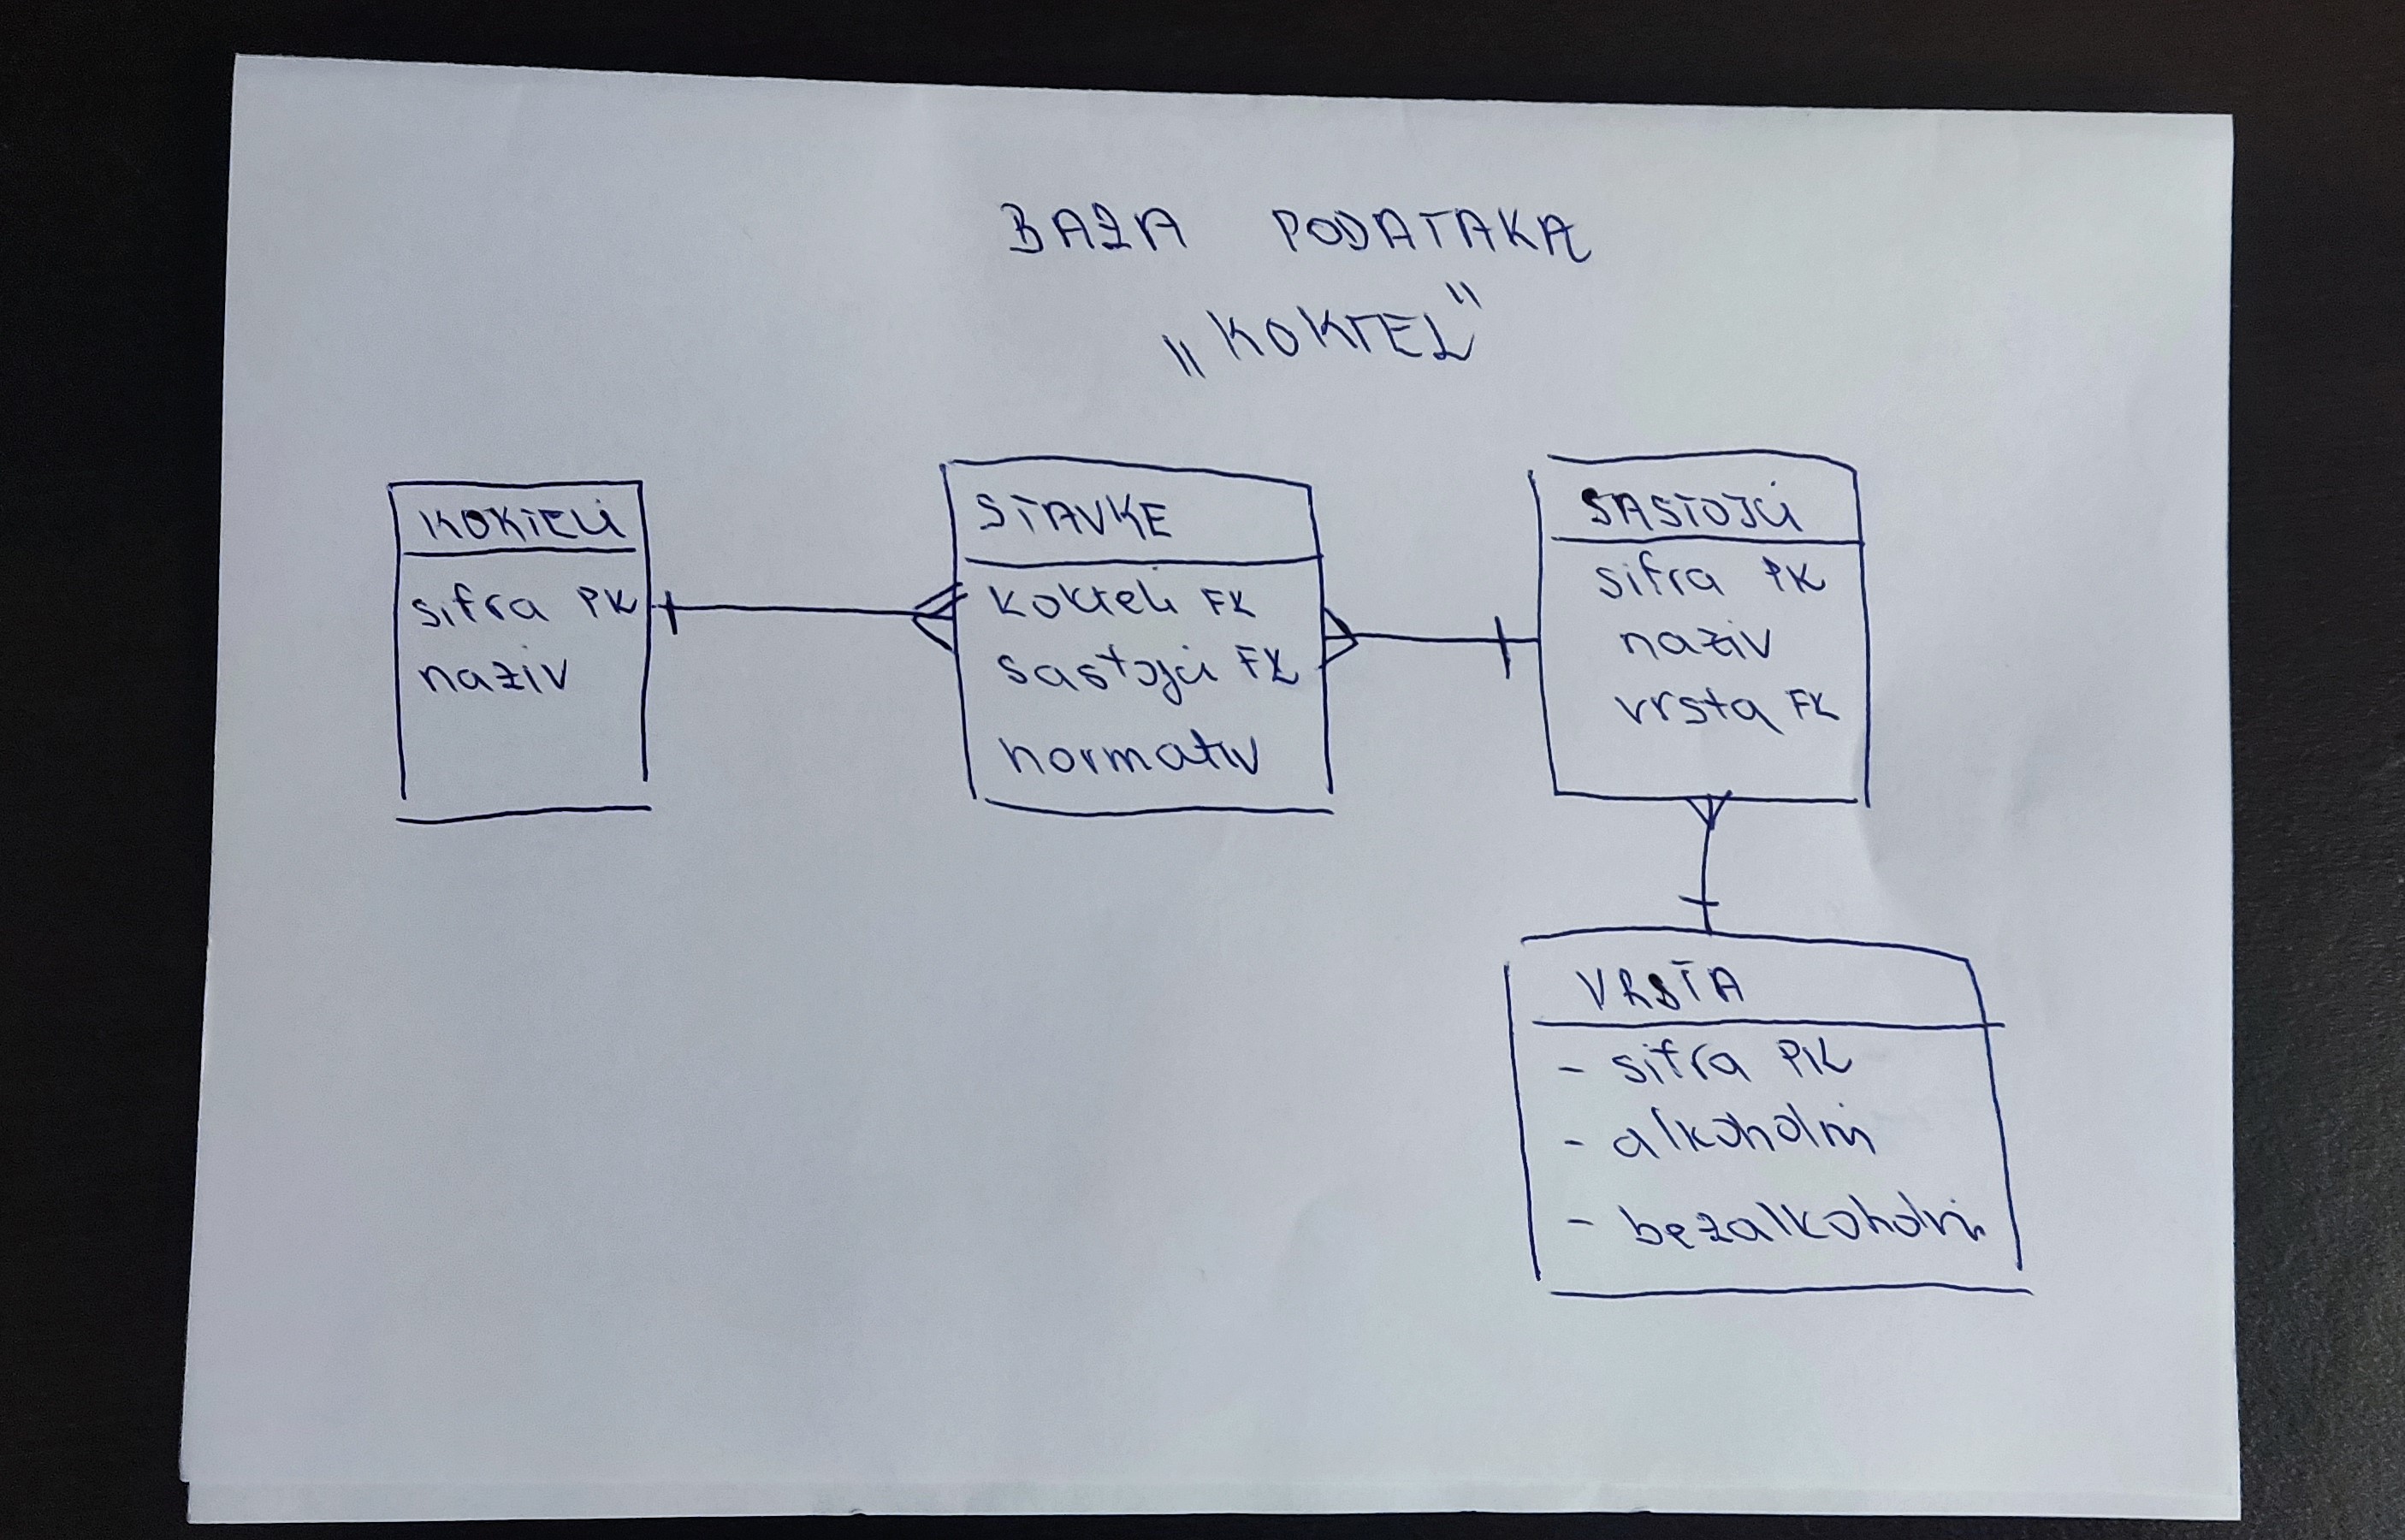 BAZA PODATAKA
„KOKTEL"
KOKTELI
sifra PK
naziv
STAVKE
kokteli FK
sastojci FK
normativ
SASTOJCI
sifra PK
naziv
vrsta FK
VRSTA
- sifra PK
- alkoholni
- bezalkoholni